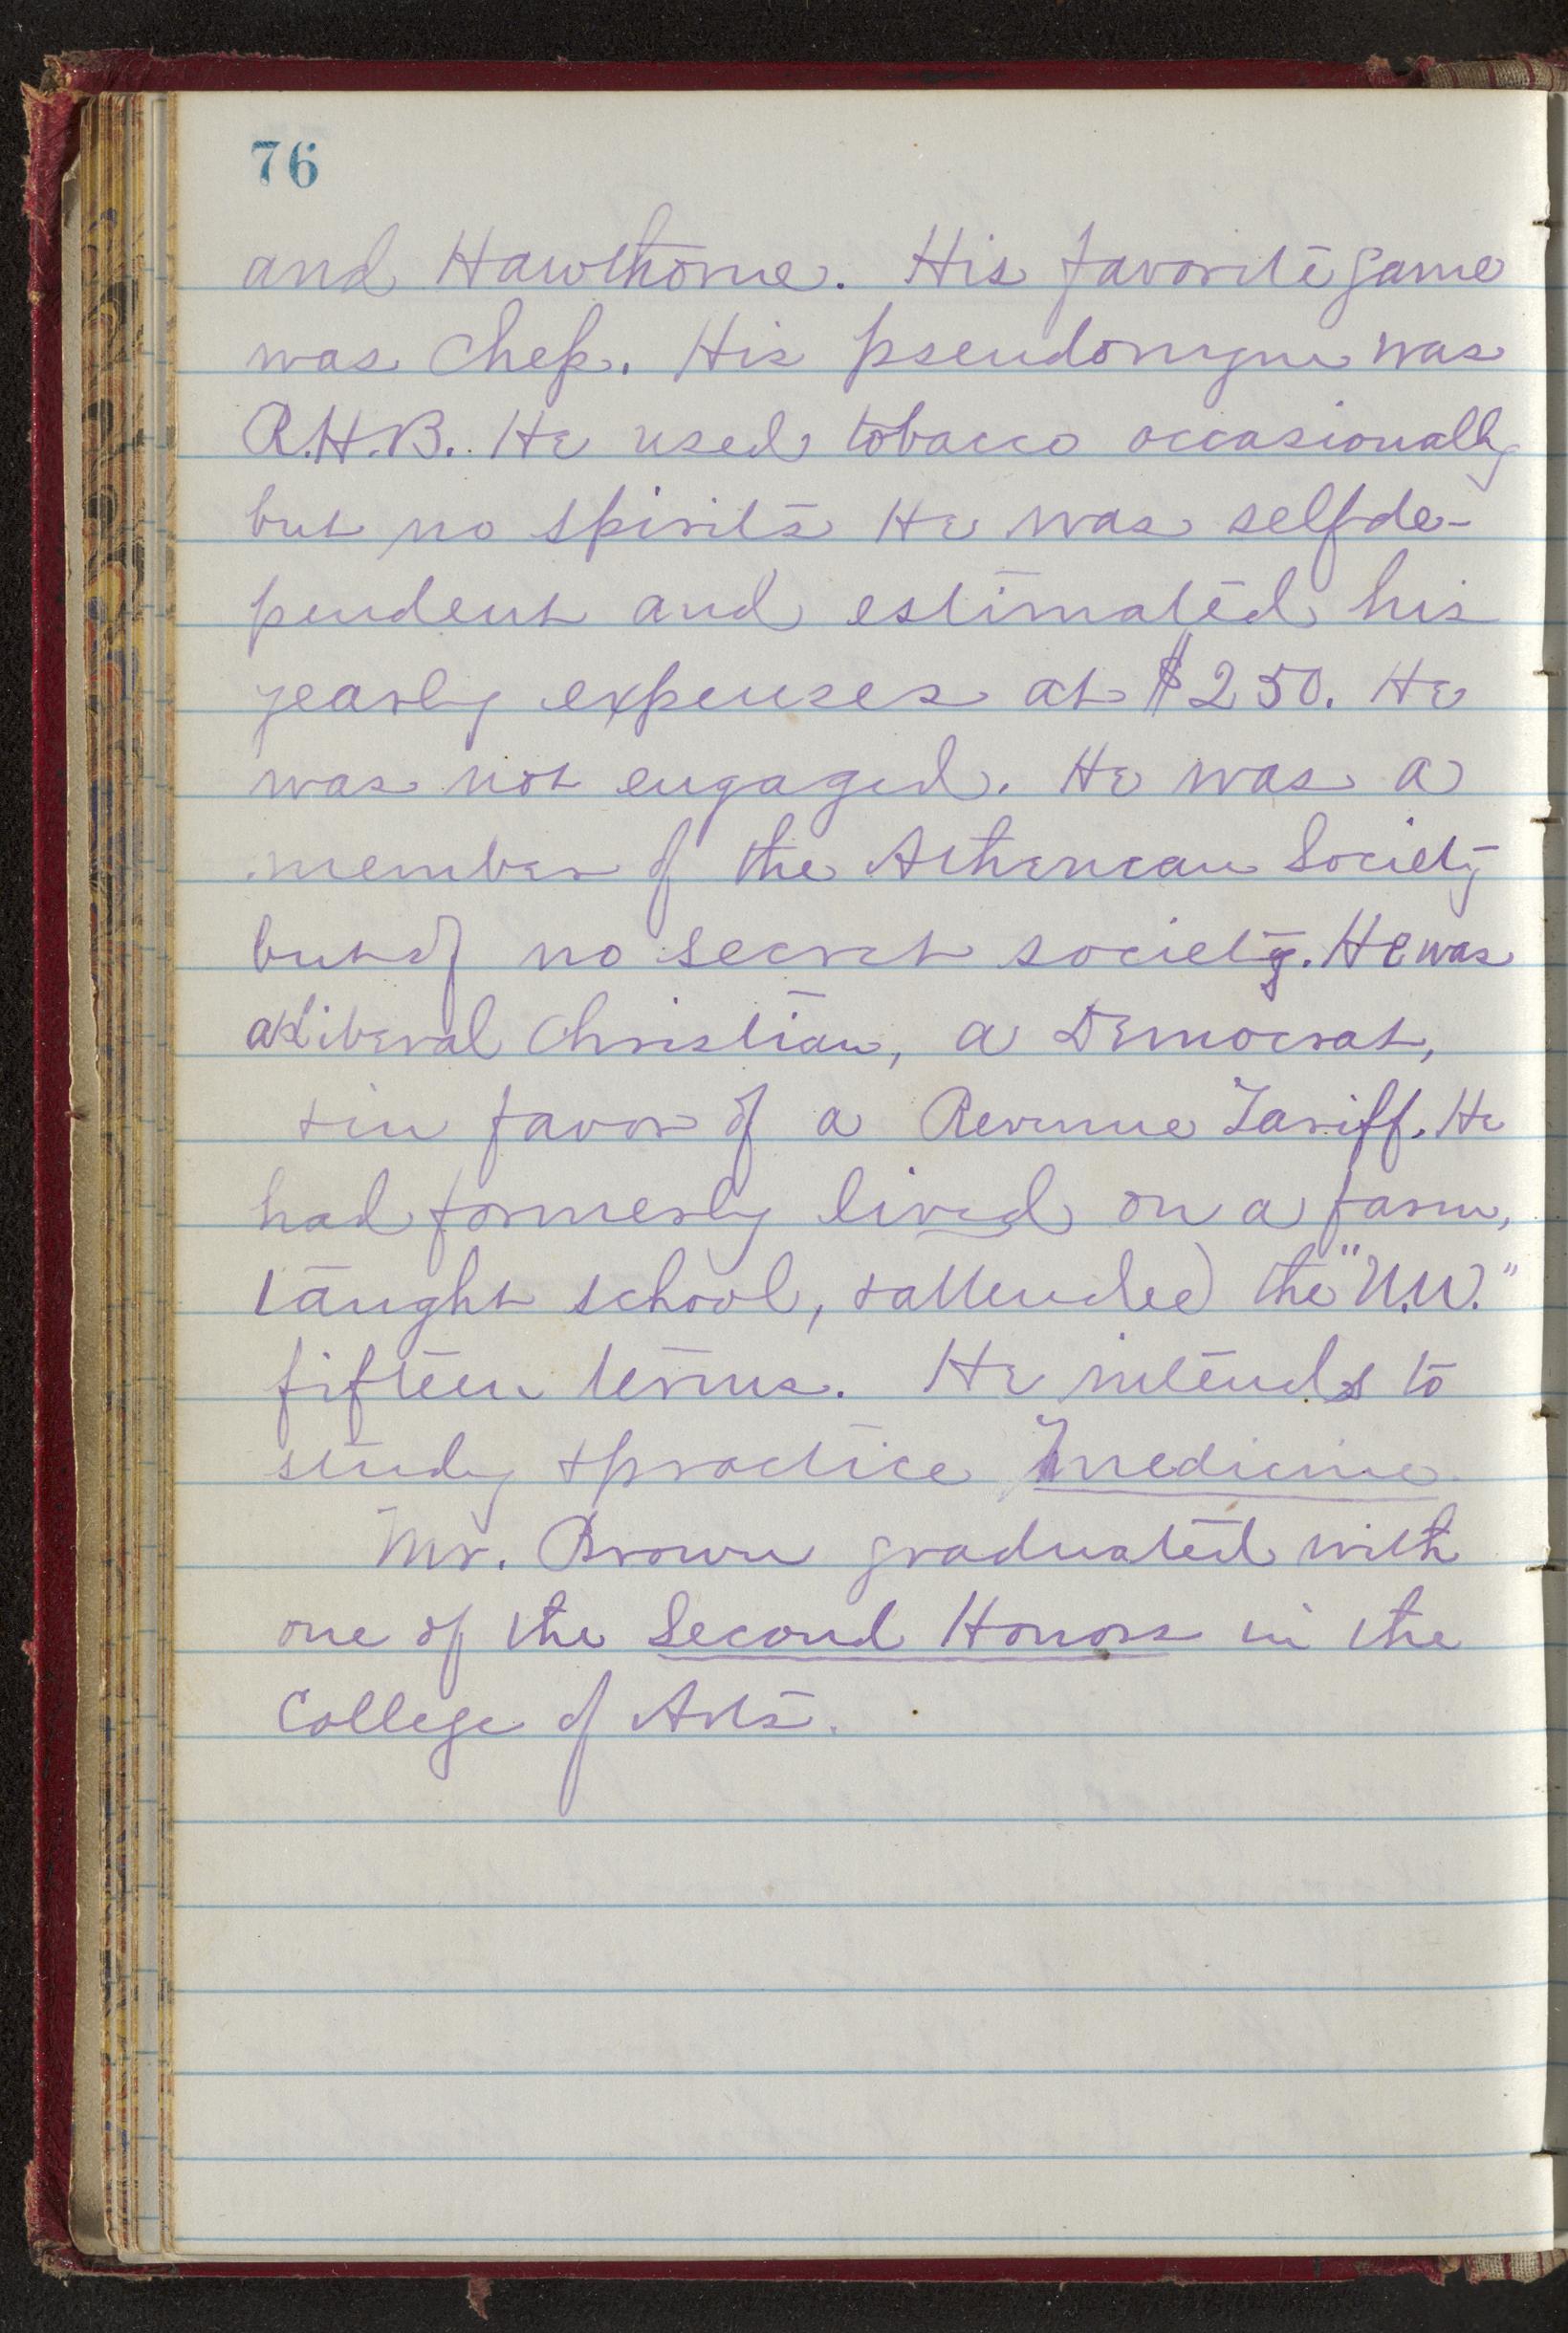 76
and Hawthorne. His favorite game
was Chess. His pseudonym was
R.H.B. He used tobacco occasionally
but no spirits He was self de-
pendent and estimated his
yearly expenses at $250. He
was not engaged. He was a
member of the Athenean Society
but of no secret society. He was
a Liberal Christian, a Democrat,
& in favor of a Revenue Tariff. He
had formerly lived on a farm,
taught school, & attended the "U.W."
fifteen terms. He intends to
study & practice Medicine
Mr. Brown graduated with
one of the Second Honors in the
College of Arts.